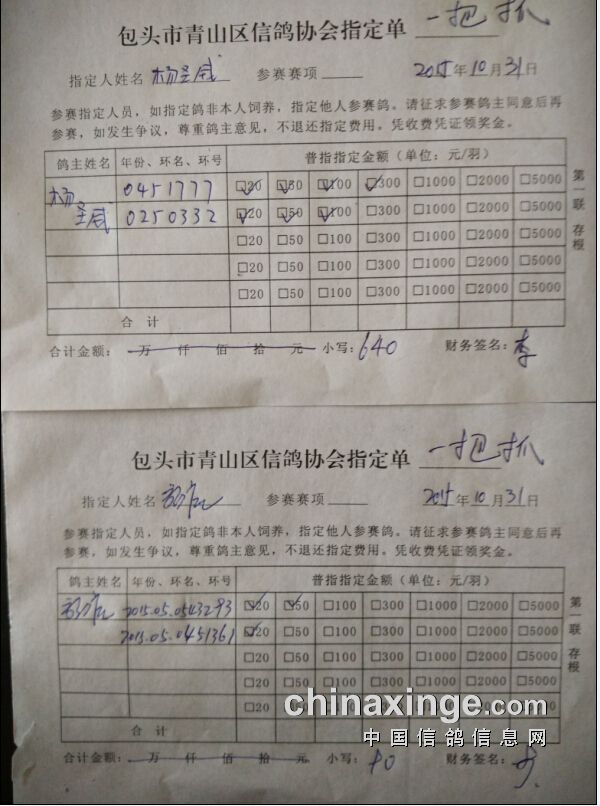 包头市青山区信鸽协会指定单 一把抓
指定人姓名 杨圣威 参赛赛项 2015年10月31日
参赛指定人员，如指定鸽非本人饲养，指定他人参赛鸽。请征求参赛鸽主同意后再
参赛，如发生争议，尊重鸽主意见，不退还指定费用。凭收费凭证领奖金。
鸽主姓名 年份、环名、环号 普指指定金额（单位：元/羽）
杨圣威 0451777 ☑20 ☑50 ☑100 ☑300 □1000 □2000 □5000
0250332 ☑20 ☑50 ☑100 □300 □1000 □2000 □5000
□20 □50 □100 □300 □1000 □2000 □5000
□20 □50 □100 □300 □1000 □2000 □5000
□20 □50 □100 □300 □1000 □2000 □5000
合 计
合计金额： 万 仟 佰 拾 元 小写：640 财务签名：李
第一联 存根
包头市青山区信鸽协会指定单 一把抓
指定人姓名 参赛赛项 2015年10月31日
参赛指定人员，如指定鸽非本人饲养，指定他人参赛鸽。请征求参赛鸽主同意后再
参赛，如发生争议，尊重鸽主意见，不退还指定费用。凭收费凭证领奖金。
鸽主姓名 年份、环名、环号 普指指定金额（单位：元/羽）
☑20 ☑50 □100 □300 □1000 □2000 □5000
2015.05.0451361 ☑20 □50 □100 □300 □1000 □2000 □5000
□20 □50 □100 □300 □1000 □2000 □5000
□20 □50 □100 □300 □1000 □2000 □5000
□20 □50 □100 □300
合 计
合计金额： 万 仟 佰 拾 元 小写： 财务签名：
第一联 存根
chinaxinge.com
中国信鸽信息网